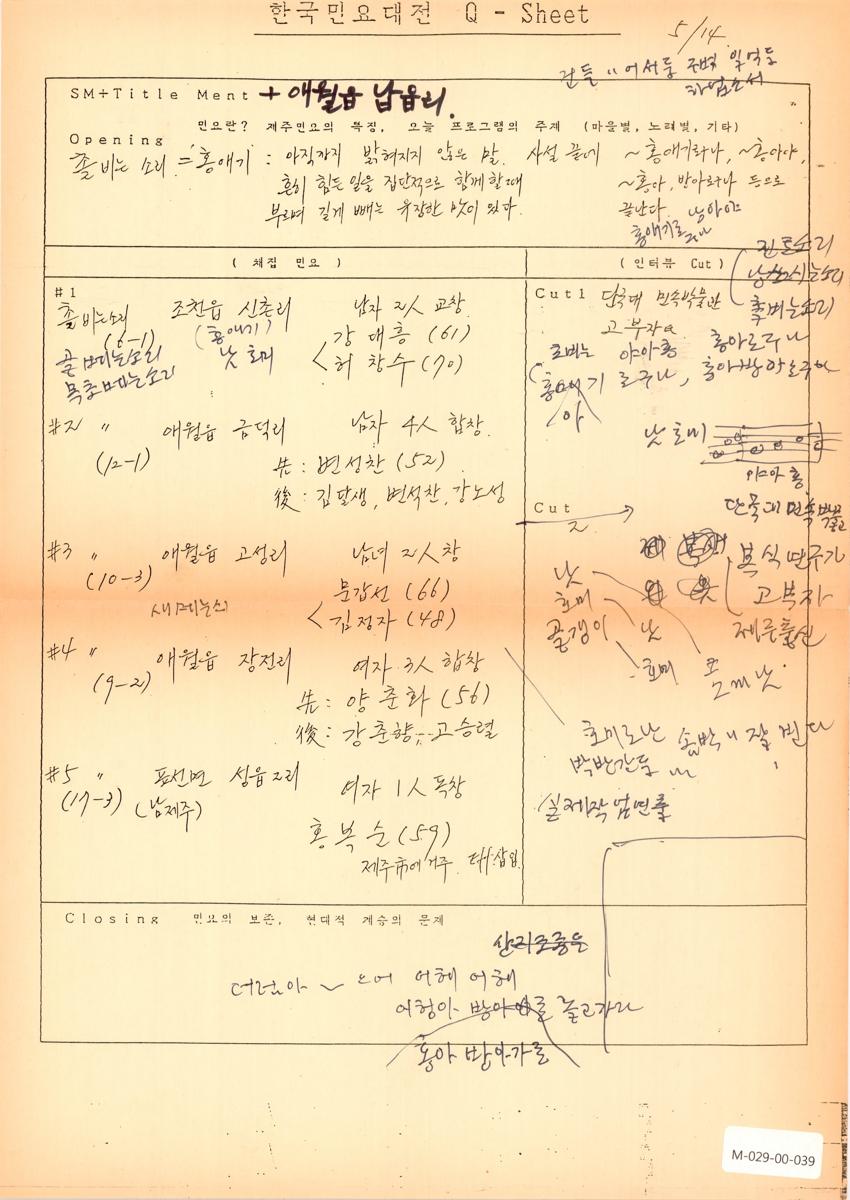 한국민요대전 Q - Sheet
5/14
SM+Title Ment + 애월읍 납읍리.
민요란? 제주민요의 특징, 오늘 프로그램의 주제 (마을별, 노래별, 기타)
Opening
촐 비는 소리 = 홍애기 : 아직까지 밝혀지지 않은 말. 사설 끝에 ~홍애기로나, ~홍아야,
흔히 힘든 일을 집단적으로 함께 할 때 ~홍아, 방아로나 등으로
부르며 길게 빼는 유장한 맛이 있다. 끝난다.
( 채집 민요 )
(인터뷰 Cut)
진토소리
촐비는소리
#1
촐비는소리 조천읍 신촌리 남자 2人 교창
(6-1) (홍애기) 강대흥 (61)
낫 호미 < 허창수 (70)
Cut1 단국대 민속박물관
고부자
야아홍 홍아로구나
로구나, 홍아방아로구나
야
낫 호미
야아홍
#2 " 애월읍 금덕리 남자 4人 합창
(12-1) 先: 변성찬 (52)
後: 김달생, 변석찬, 강노성
Cut 2
단국대 민속박물관
#3 " 애월읍 고성리 남녀 2人창
(10-3) 문갑선 (66)
< 김정자 (48)
복식연구가
고부자
제주출신
낫
호미
골갱이 낫
호미
#4 " 애월읍 장전리 여자 3人 합창
(9-2) 先: 양춘화 (56)
後: 강춘향, 고승렬
호미로난 잘 빈다
실제작업면
#5 " 표선면 성읍2리 여자 1人 독창
(17-3) (남제주)
홍복순 (59)
제주市에 거주.
Closing 민요의 보존, 현대적 계승의 문제
산지조종은
어헤 어헤
홍아 방아가로
M-029-00-039